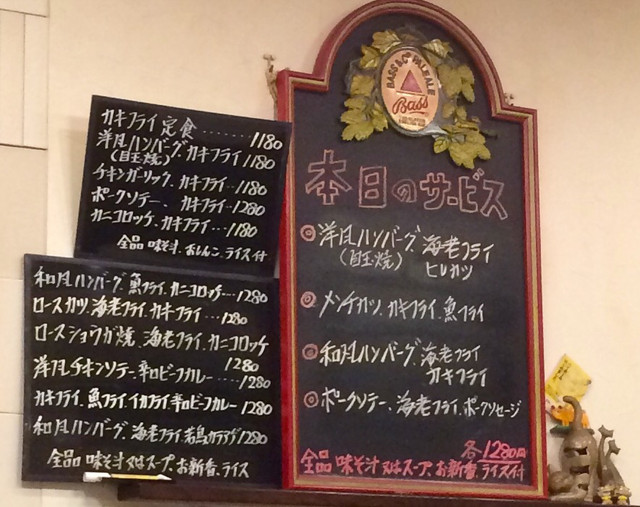 カキフライ定食........1180
洋風ハンバーグ、カキフライ1180
(目玉焼)
チキンガーリック、カキフライ...1180
ポークソテー、カキフライ...1280
カニコロッケ、カキフライ...1180
全品 味そ汁、おしんこ、ライス付
和風ハンバーグ、魚フライ、カニコロッケ....1280
ロースカツ、海老フライ、カキフライ....1280
ロースショウガ焼、海老フライ、カニコロッケ
1280
洋風チキンソテー、辛口ビーフカレー....1280
カキフライ、魚フライ、イカフライ、辛口ビーフカレー1280
和風ハンバーグ、海老フライ、若鳥カラアゲ1280
全品 味そ汁又はスープ、お新香、ライス
BASS & Co PALE ALE
Bass
本日のサービス
◎洋風ハンバーグ、海老フライ
(目玉焼) ヒレカツ
◎メンチカツ、カキフライ、魚フライ
◎和風ハンバーグ、海老フライ
カキフライ
◎ポークソテー、海老フライ、ポークソセージ
各1280円
全品 味そ汁又はスープ、お新香、ライス付